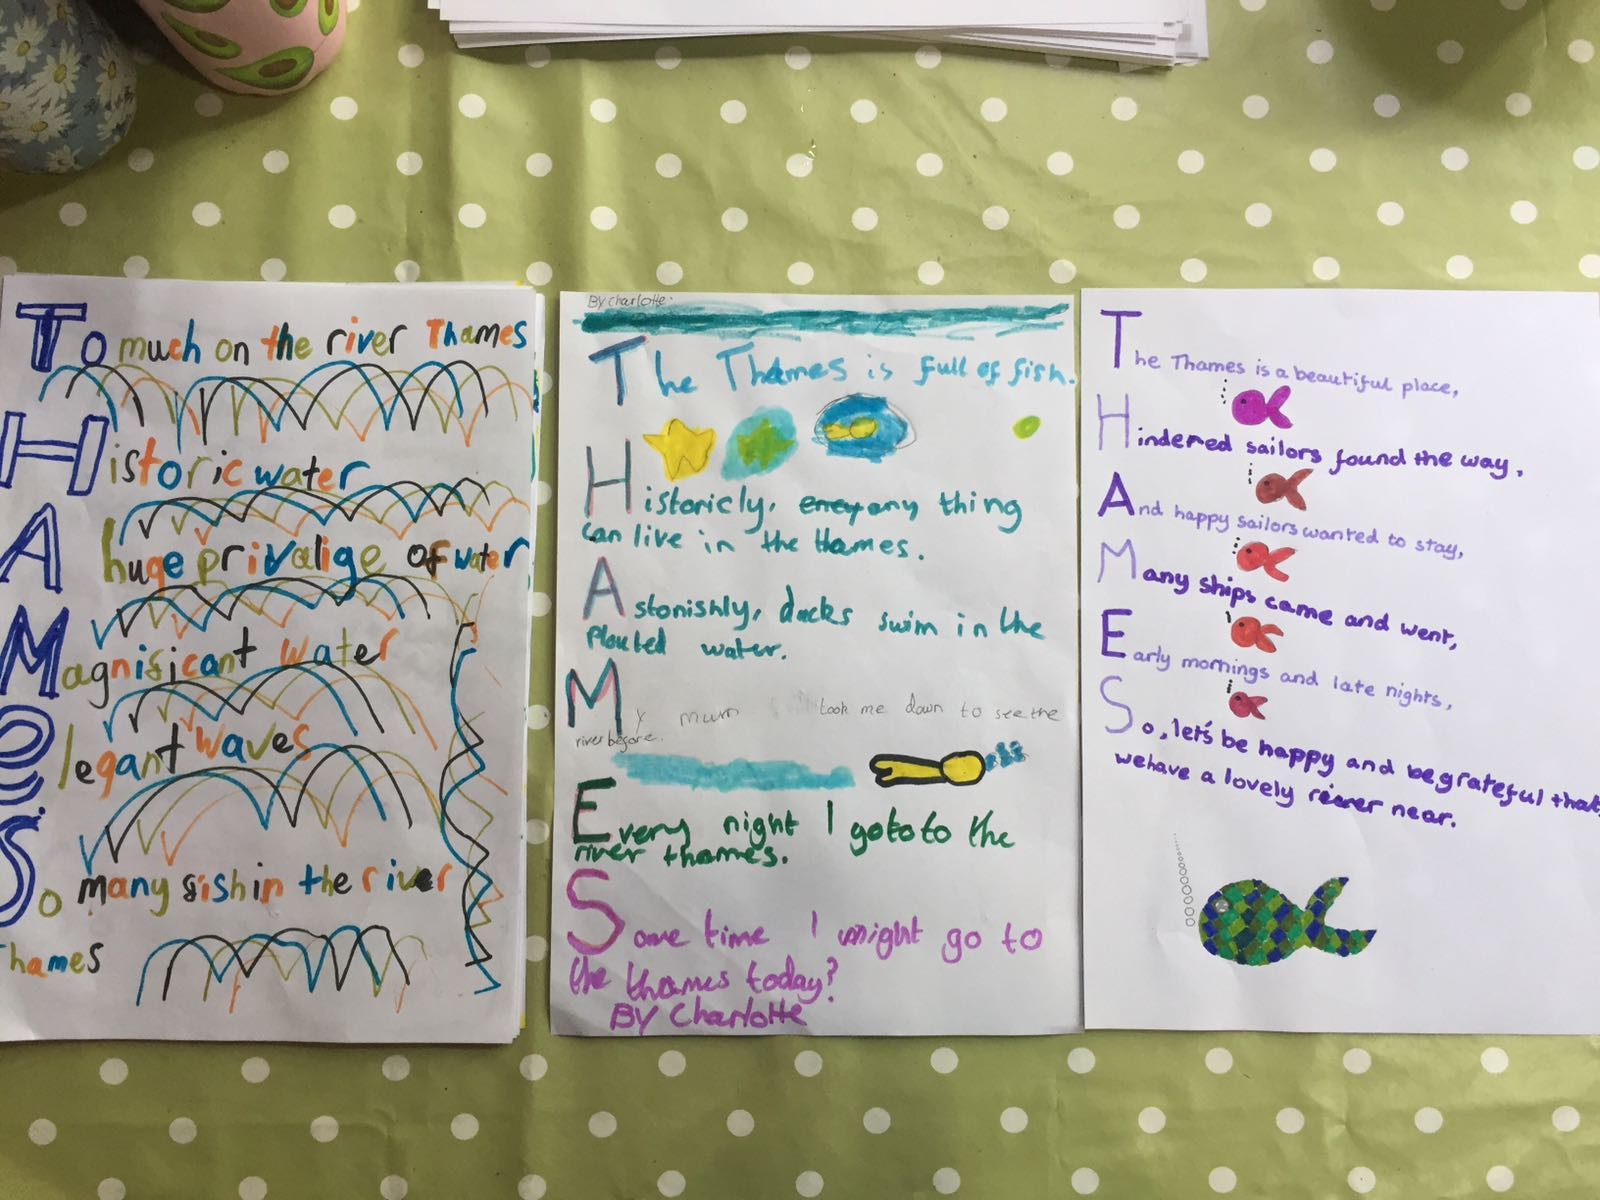 To much on the river Thames
Historic water
A huge privalige of water
Magnificant water
elegant waves
So many fish in the river
Thames
By Charlotte.
The Thames is full of fish.
Historicly, any thing
can live in the thames.
Astonishly, ducks swim in the
plouted water.
My mum took me down to see the
river before.
Every night I go to to the
river thames.
Some time I might go to
the thames today?
BY Charlotte
The Thames is a beautiful place,
Hindered sailors found the way,
And happy sailors wanted to stay,
Many ships came and went,
Early mornings and late nights,
So, let's be happy and be grateful that
we have a lovely river near.